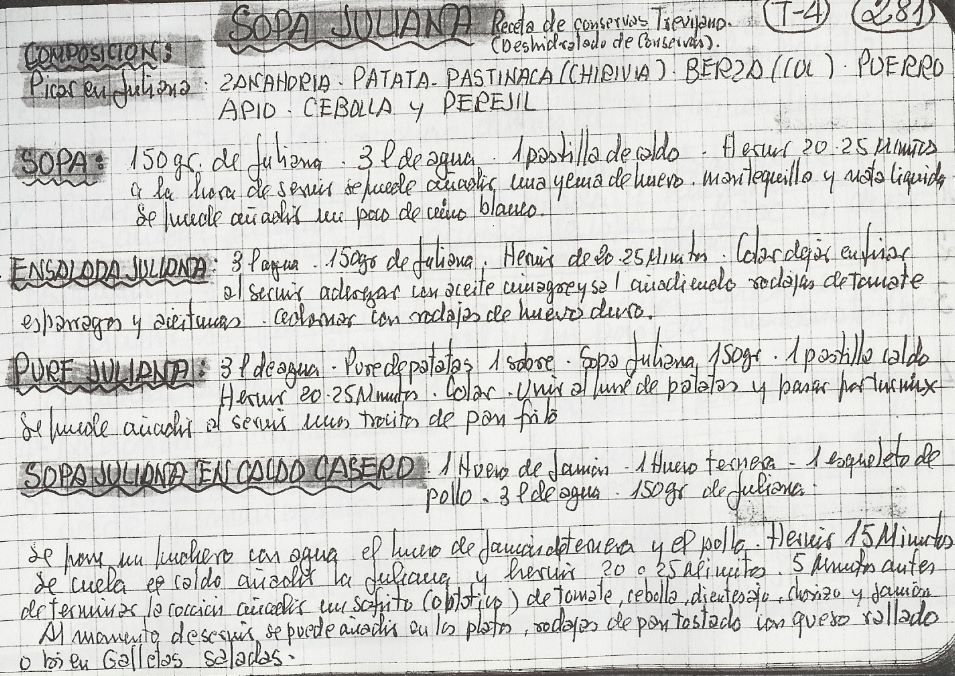 SOPA JULIANA Receta de conservas Trevijano. (T-4) (281)
(Deshidratado de Conservas).
COMPOSICION:
Picar en Juliana: ZANAHORIA. PATATA. PASTINACA (CHIRIVIA). BERZA (COL). PUERRO
APIO. CEBOLLA y PEREJIL
SOPA: 150 gr. de Juliana. 3 l de agua. 1 pastilla de caldo. Hervir 20-25 Minutos
a la hora de servir se puede añadir una yema de huevo. mantequilla y nata liquida
Se puede añadir un poco de vino blanco.
ENSALADA JULIANA: 3 l agua. 150 gr de Juliana. Hervir de 20-25 Minutos. Colar dejar enfriar
al servir aderezar con aceite vinagre y sal añadiendo rodajas de tomate
esparragos y aceitunas. Adornar con rodajas de huevo duro.
PURE JULIANA: 3 l de agua. Pure de patatas 1 sobre. Sopa Juliana 150 gr. 1 pastilla caldo
Hervir 20-25 Minutos. Colar. Unir al pure de patatas y pasar por turmix
Se puede añadir al servir unos trocitos de pan frito
SOPA JULIANA EN CALDO CASERO 1 Hueso de Jamón - 1 Hueso ternera - 1 esqueleto de
pollo - 3 l de agua. 150 gr de Juliana.
Se pone un puchero con agua el hueso de Jamón de ternera y el pollo. Hervir 15 Minutos
Se cuela el caldo añadir la Juliana y hervir 20 o 25 Minutos. 5 Minutos antes
de terminar la cocción añadir un sofrito (optativo) de tomate, cebolla, diente ajo, chorizo y Jamón
Al momento de servir, se puede añadir en los platos, rodajas de pan tostado con queso rallado
o bien Galletas saladas.